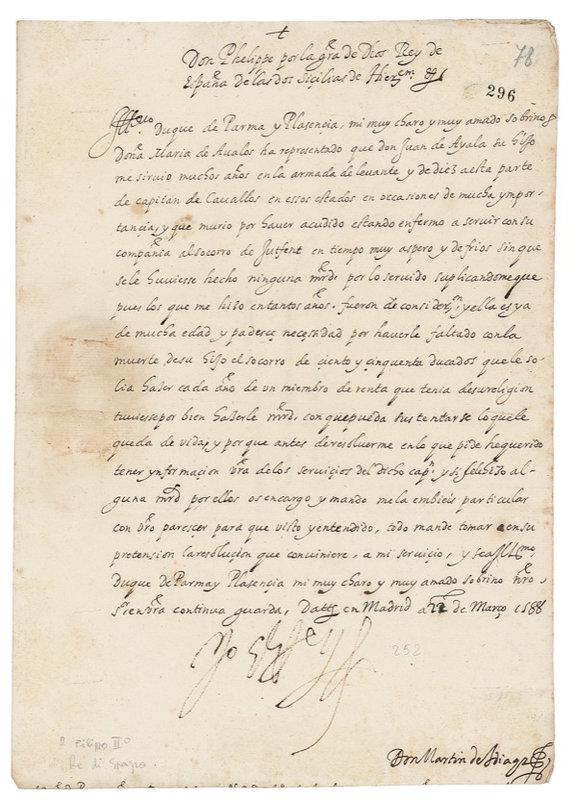 +
Don Phelippe por la gra de Dios Rey de
España de las dos Siçilias de Hierem &
78
296
Illmo Duque de Parma y Plasencia, mi muy charo y muy amado sobrino
Doña Maria de Aualos ha representado que don Juan de Ayala su hijo
me siruio muchos años en la armada de leuante y de diez a esta parte
de capitan de Cauallos en essos estados en occasiones de mucha ympor-
tancia, y que murio por hauer acudido estando enfermo a seruir con su
compañia al socorro de Zutfent en tiempo muy aspero y de frios sin que
se le huuiesse hecho ninguna mrd por lo seruido suplicandome que
pues los que me hizo en tantos años. fueron de consideron y ella es ya
de mucha edad y padesce necesidad por hauerle faltado con la
muerte de su hijo el socorro de ciento y cinquenta ducados que le so-
lia haser cada año de vn miembro de renta que tenia de su religion
tuuiesse por bien haserle mrd, con que pueda sustentarse lo que le
queda de vida, y por que antes de resoluerme en lo que pide he querido
tener ynformacion vra de los seruicios del dicho capn y si se le hizo al-
guna mrd por ellos os encargo y mando me la embieis particular
con vro parescer para que visto y entendido, todo mande tomar en su
pretension la resolucion que conuiniere, a mi seruicio, y sea Illmo
Duque de Parma y Plasencia mi muy charo y muy amado sobrino nro
Sr en vra continua guarda, Datt en Madrid a 22 de Março 1588
Yo el Rey
252
D. Filippo IIº
Re di Spagna.
Don Martin de Idiaqz